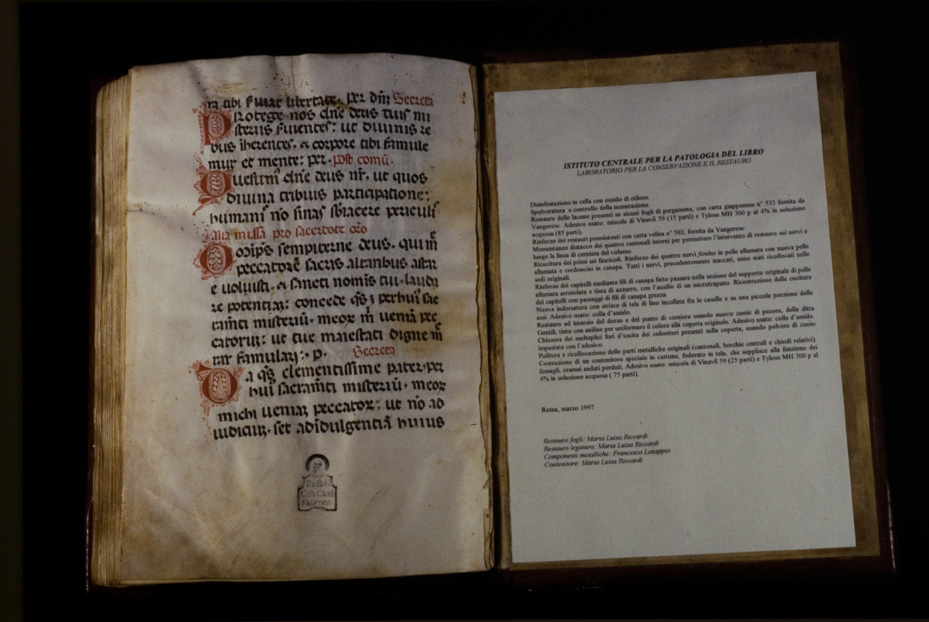 ra tibi seruiat libertate. per dnm Secreta
Protege nos dne deus tuis mi
steriis seruientes: ut diuinis re
bus iherentes. & corpore tibi famule
mur et mente: per. post comu.
Quesumus dne deus nr. ut quos
diuina tribuis participatione:
humanis no sinas sbiacere periculis
alia missa pro sacerdote oro
Omps sempiterne deus. qui m
peccatore sacris altaribus astar
e uoluisti. & sancti nomis tui. lauda
re potentiaz: concede qs; perhui sac
ramti misteriu. meor m ueniaz pec
catoruz: ut tue maiestati digne m
rar famulari: p. Secreta
Da qs clementissime pater. per
hui sacramti misteriu. meor
michi ueniaz peccator: ut no ad
iudiciuz. set ad idulgentia huius
Ex Bibl
Falconi
ISTITUTO CENTRALE PER LA PATOLOGIA DEL LIBRO
LABORATORIO PER LA CONSERVAZIONE E IL RESTAURO
Disinfestazione in cella con ossido di etilene.
Spolveratura e controllo della numerazione.
Restauro delle lacune presenti su alcuni fogli di pergamena, con carta giapponese n° 533 fornita da
Vangerow. Adesivo usato: miscela di Vinavil 59 (15 parti) e Tylose MH 300 p al 4% in soluzione
acquosa (85 parti).
Rinforzo dei restauri preesistenti con carta velina n° 502, fornita da Vangerow.
Momentaneo distacco dei quattro cantonali interni per permettere l'intervento di restauro sui nervi e
lungo la linea di cerniera del volume.
Ricucitura dei primi sei fascicoli. Rinforzo dei quattro nervi fendus in pelle allumata con nuova pelle
allumata e cordoncini in canapa. Tutti i nervi, precedentemente staccati, sono stati ricollocati nelle
sedi originali.
Rinforzo dei capitelli mediante fili di canapa fatto passare nella sezione del supporto originale di pelle
allumata arrotolata e tinta di azzurro, con l'ausilio di un microtrapano. Ricostruzione della cucitura
dei capitelli con passaggi di fili di canapa grezza.
Nuova indorsatura con strisce di tela di lino incollata fra le caselle e su una piccola porzione delle
assi. Adesivo usato: colla d'amido.
Restauro ad intarsio del dorso e del punto di cerniera usando nuovo cuoio di pecora, della ditta
Gentili, tinto con aniline per uniformare il colore alla coperta originale. Adesivo usato: colla d'amido.
Chiusura dei molteplici fori d'uscita dei coleotteri presenti sulla coperta, usando polvere di cuoio
impastata con l'adesivo.
Pulitura e ricollocazione delle parti metalliche originali (cantonali, borchie centrali e chiodi relativi).
Costruzione di un contenitore speciale in cartone, foderato in tela, che supplisce alla funzione dei
fermagli, oramai andati perduti. Adesivo usato: miscela di Vinavil 59 (25 parti) e Tylose MH 300 p al
4% in soluzione acquosa ( 75 parti).
Roma, marzo 1997
Restauro fogli: Maria Luisa Riccardi
Restauro legatura: Maria Luisa Riccardi
Componenti metalliche: Francesco
Contenitore: Maria Luisa Riccardi